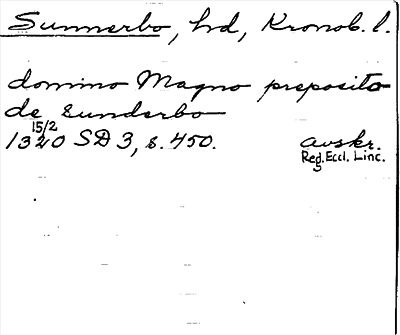 Sunnerbo, hd, Kronob. l.
domino Magno preposito
de Sunderbo
15/2
1320 SD 3, s. 450. avskr.
Reg. Eccl. Linc.